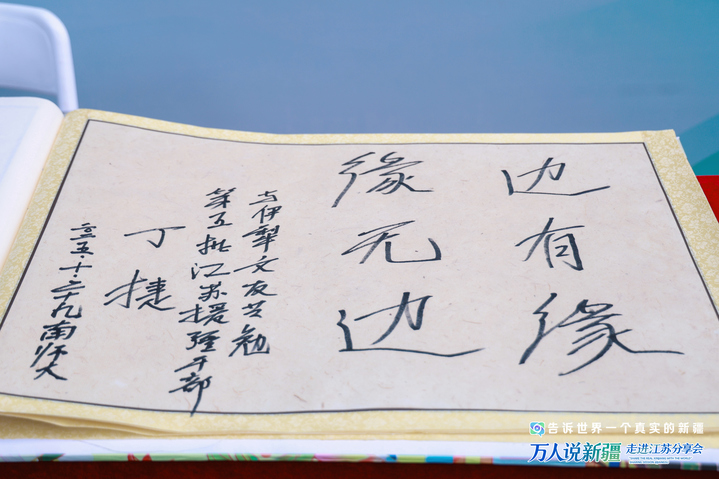 边有缘
缘无边
与伊犁文友共勉
第五批江苏援疆干部
丁捷
二〇二五·十·二十九南师大
告诉世界一个真实的新疆
万人说新疆 走进江苏分享会